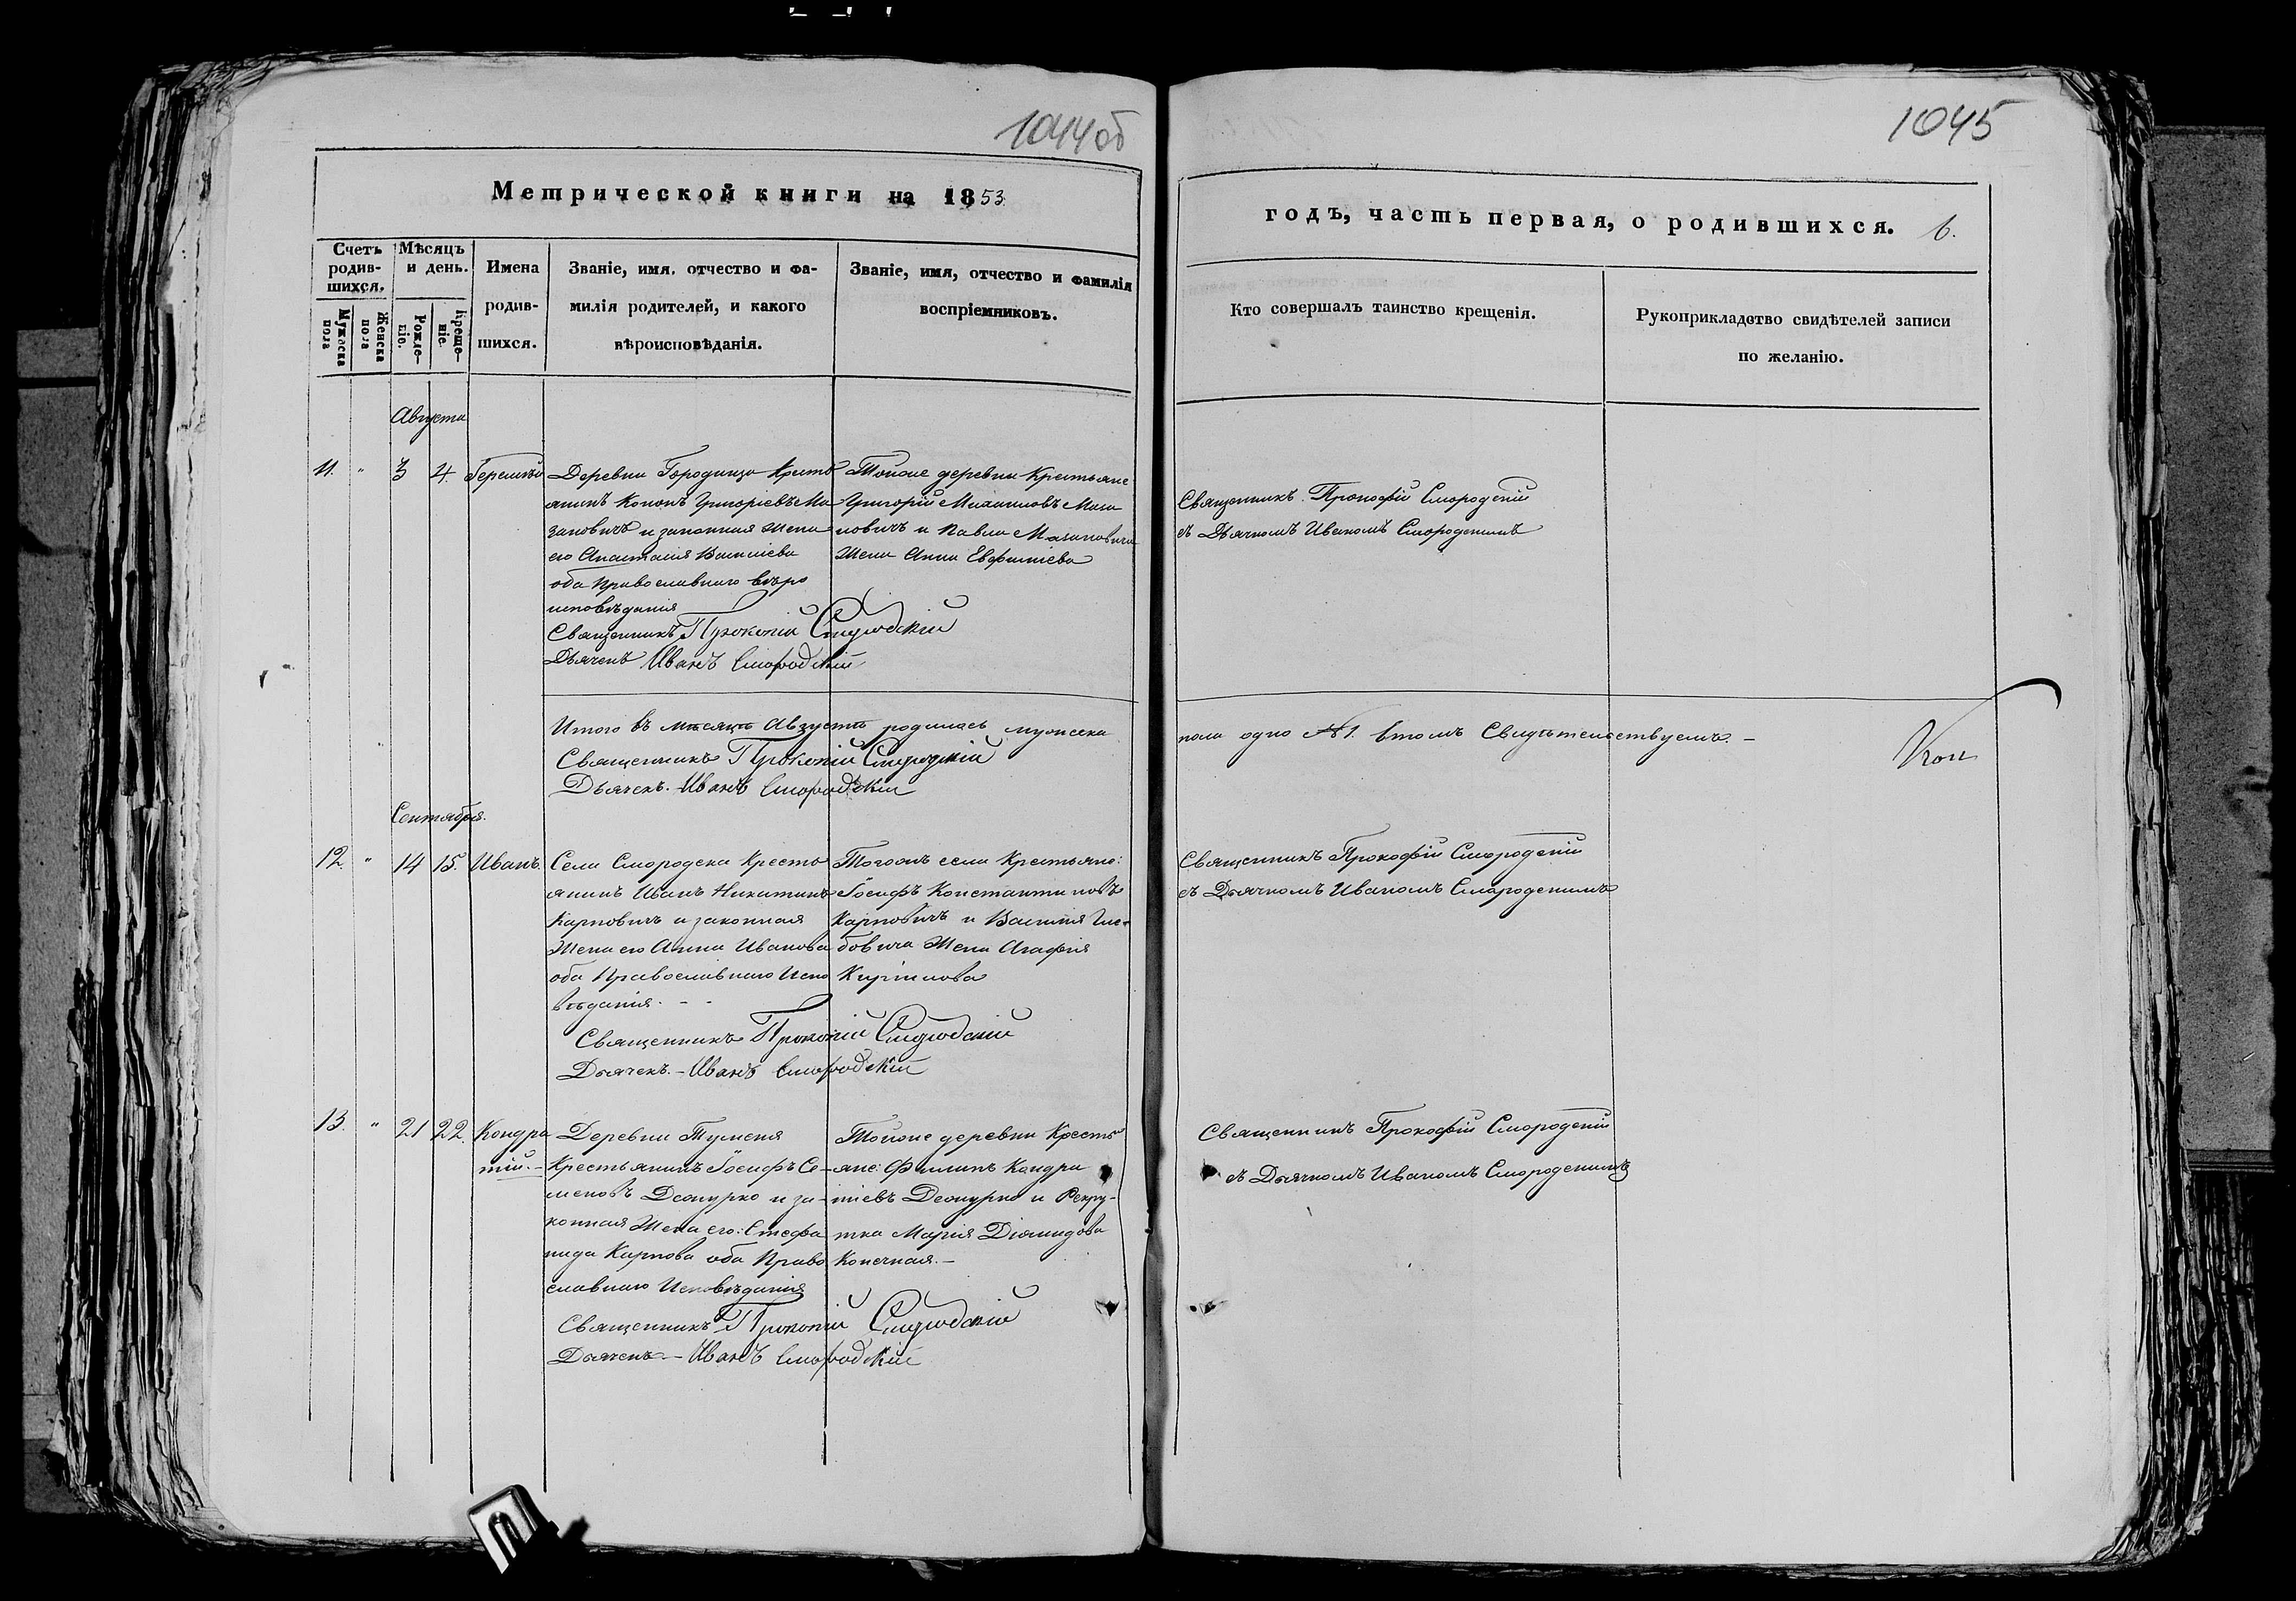 1044об
1045
Метрической книги на 1853
годъ, часть первая, о родившихся. 6.
Счетъ родившихся.
Мужеска пола
Женска пола
Мѣсяцъ и день.
Рожденіе.
Крещеніе.
Имена родившихся.
Званіе, имя, отчество и фамилія родителей, и какого вѣроисповѣданія.
Званіе, имя, отчество и фамилія воспріемниковъ.
Кто совершалъ таинство крещенія.
Рукоприкладство свидѣтелей записи по желанію.
Августа
11. " 3 4.
Деревни Городища Кресть
янинъ Кононъ Григоріевъ Ма
зановичъ и законная жена
его Анастасія Василіева
оба Православнаго вѣро
исповѣданія
Тойже деревни Крестьяне
Григорій Михаиловъ Маза
новичъ и Павла Мазановича
Жена Анна Евфиміева
Священникъ Прокопій Смородскій
Дьячекъ Иванъ Смородскій
Священникъ Прокофій Смородскій
съ Дьячкомъ Иваномъ Смородскимъ
Итого въ мѣсяцѣ Августѣ родилось мужеска
пола одно №1. Втомъ Свидѣтельствуемъ. –
Священникъ Прокопій Смородскій
Дьячекъ. Иванъ Смородскій
Сентября.
12. " 14 15. Иванъ.
Села Смородска Кресть
янинъ Иванъ Никитинъ
Карповичъ и законная
Жена его Анна Иванова
оба Православнаго Испо
вѣданія. - -
Тогожъ села Крестьяне:
Іосифъ Константиновъ
Карповичъ и Василія Глѣ-
бовича Жена Агафія
Кирилова
Священникъ Прокопій Смородскій
Дьячекъ. – Иванъ Смородскій
Священникъ Прокофій Смородскій
съ Дьячкомъ Иваномъ Смородскимъ
13. " 21 22. Кондра
тій. –
Деревни Туменя
Крестьянинъ Іосифъ Се-
меновъ Деожурко и за-
конная Жена его: Стефа
нида Карпова оба Право
славнаго Исповѣданія
Тойже деревни Кресть
яне: Филипъ Кондра
тіевъ Деожурко и Рекру-
тка Марія Діомидова
Конечная. –
Священникъ Прокопій Смородскій
Дьячекъ. – Иванъ Смородскій
Священникъ Прокофій Смородскій
съ Дьячкомъ Иваномъ Смородскимъ